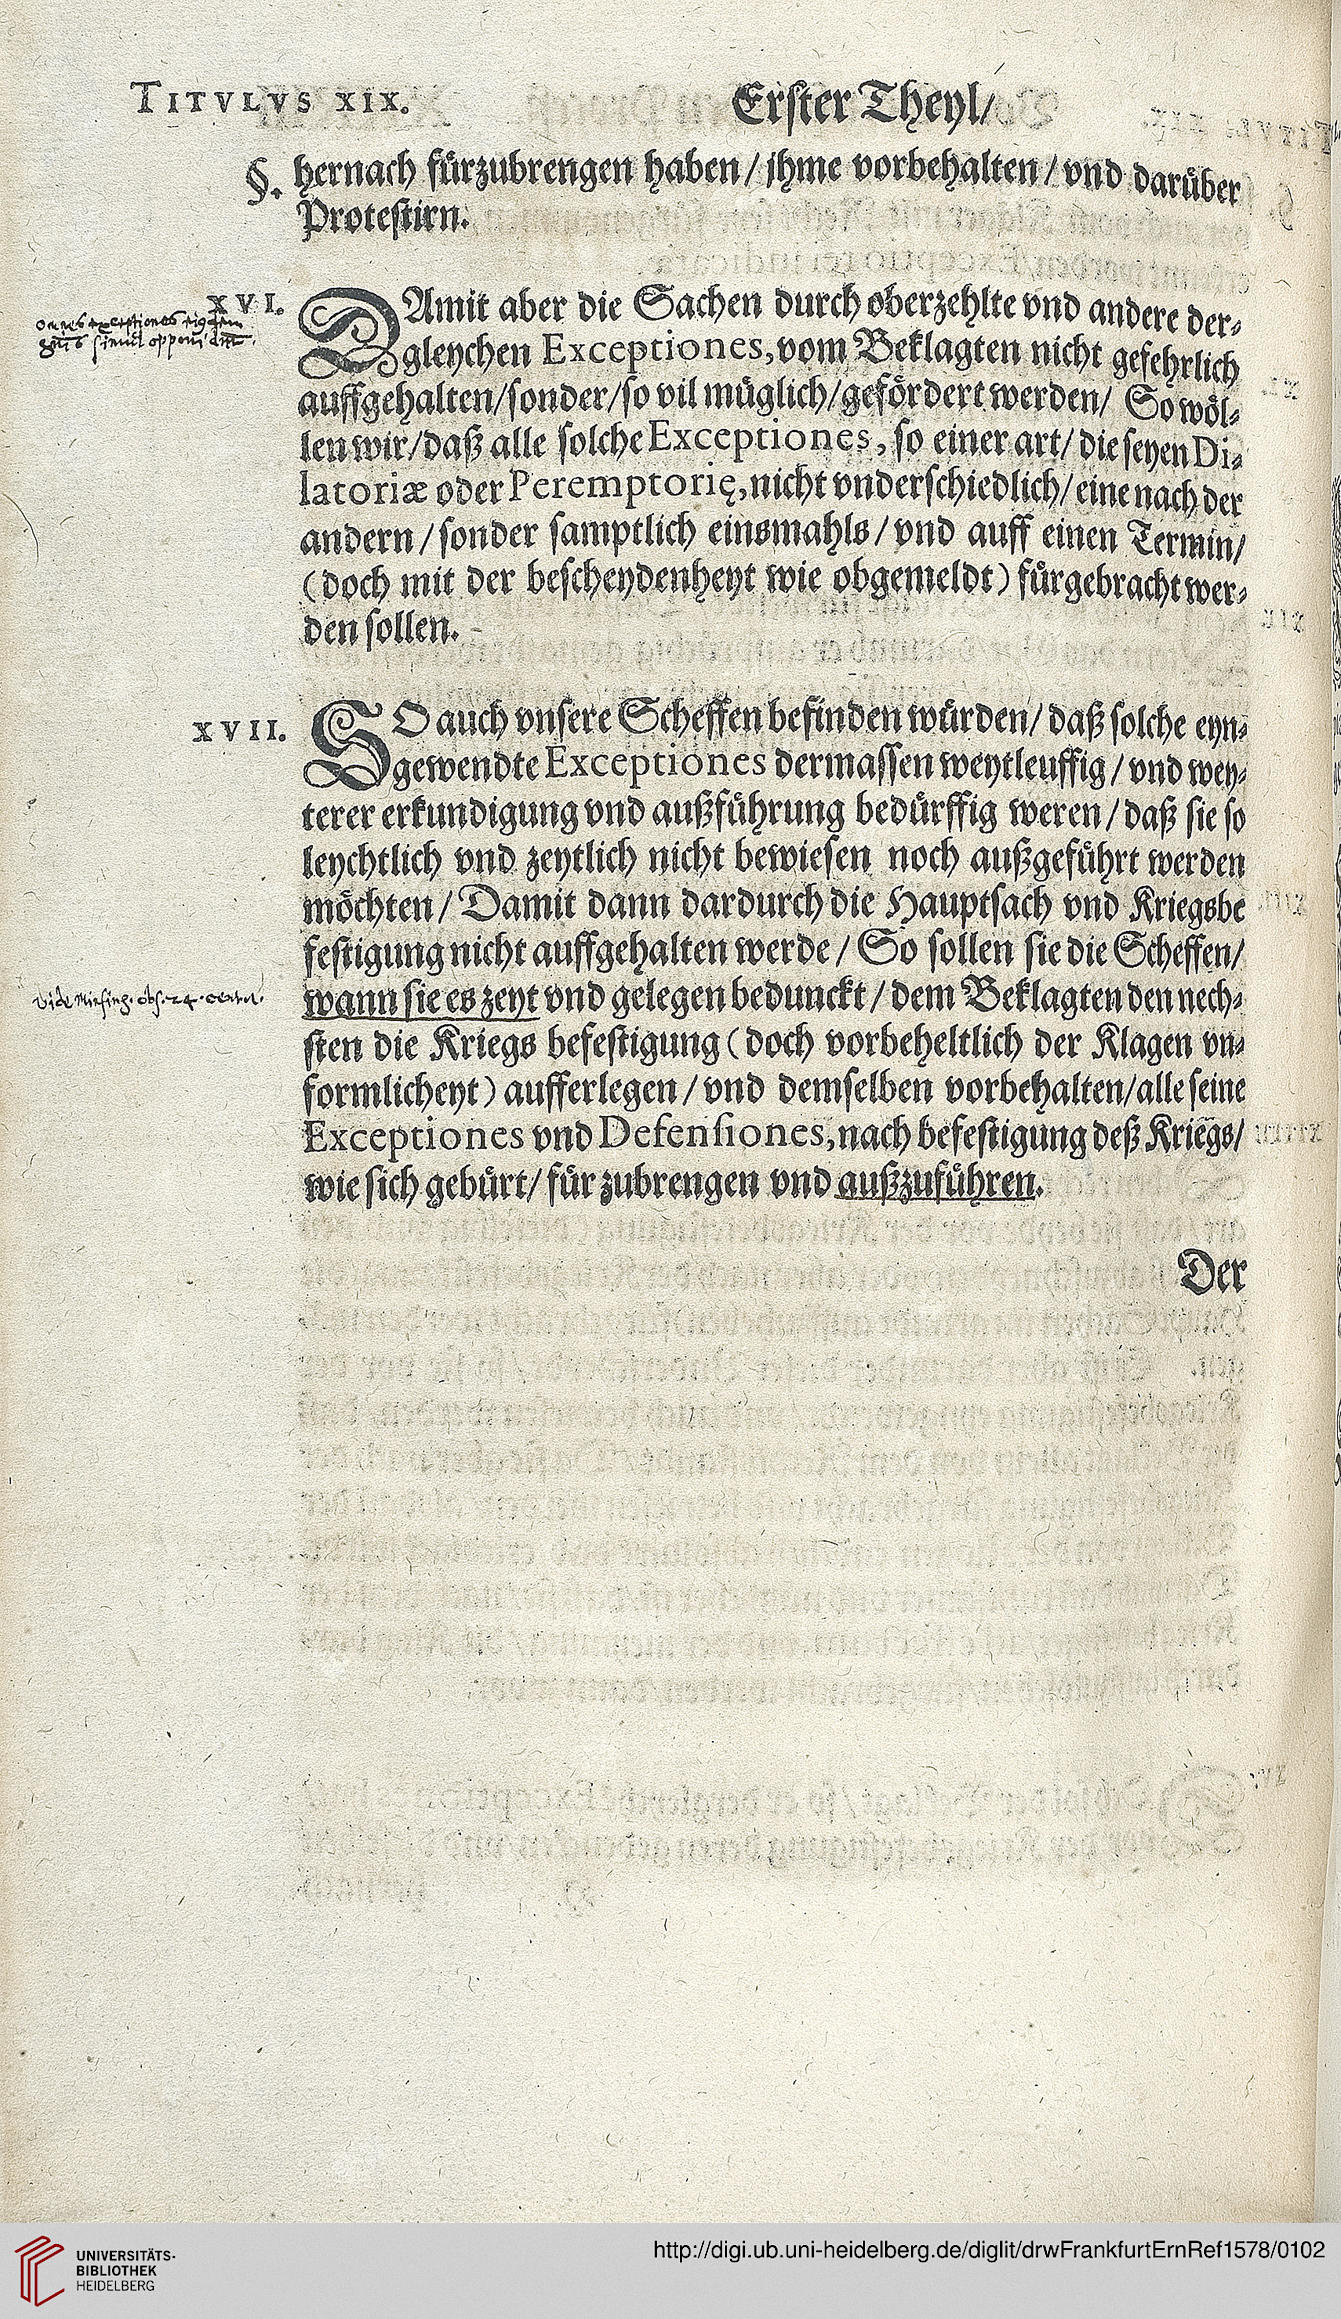 TITVLVS XIX. Erster Theyl/
§. hernach fürzubrengen haben / jhme vorbehalten / vnd darüber
Protestirn.
XVI. DAmit aber die Sachen durch oberzehlte vnd andere der⸗
Omnes exceptiones eiusdem
generis simul opponi
gleychen Exceptiones, vom Beklagten nicht gefehrlich
auffgehalten/ sonder/ so vil müglich/ gefördert werden/ So wöl⸗
len wir/ daß alle solche Exceptiones, so einer art/ die seyen Di⸗
latoriæ oder Peremptorię, nicht vnderschiedlich/ eine nach der
andern / sonder samptlich einsmahls / vnd auff einen Termin/
(doch mit der bescheydenheyt wie obgemeldt) fürgebracht wer⸗
den sollen.
XVII. SO auch vnsere Scheffen befinden würden/ daß solche eyn⸗
gewendte Exceptiones dermassen weytleuffig / vnd wey⸗
terer erkundigung vnd außführung bedürffig weren / daß sie so
leychtlich vnd zeytlich nicht bewiesen noch außgeführt werden
möchten / Damit dann dardurch die Hauptsach vnd Kriegsbe
festigung nicht auffgehalten werde / So sollen sie die Scheffen/
vide Minsing. obs. 24. cent.
wann sie es zeyt vnd gelegen bedunckt / dem Beklagten den nech⸗
sten die Kriegs befestigung (doch vorbeheltlich der Klagen vn⸗
formlicheyt) aufferlegen / vnd demselben vorbehalten/ alle seine
Exceptiones vnd Defensiones, nach befestigung deß Kriegs/
wie sich gebürt/ für zubrengen vnd außzuführen.
Der
UNIVERSITÄTS-
BIBLIOTHEK
HEIDELBERG
http://digi.ub.uni-heidelberg.de/diglit/drwFrankfurtErnRef1578/0102